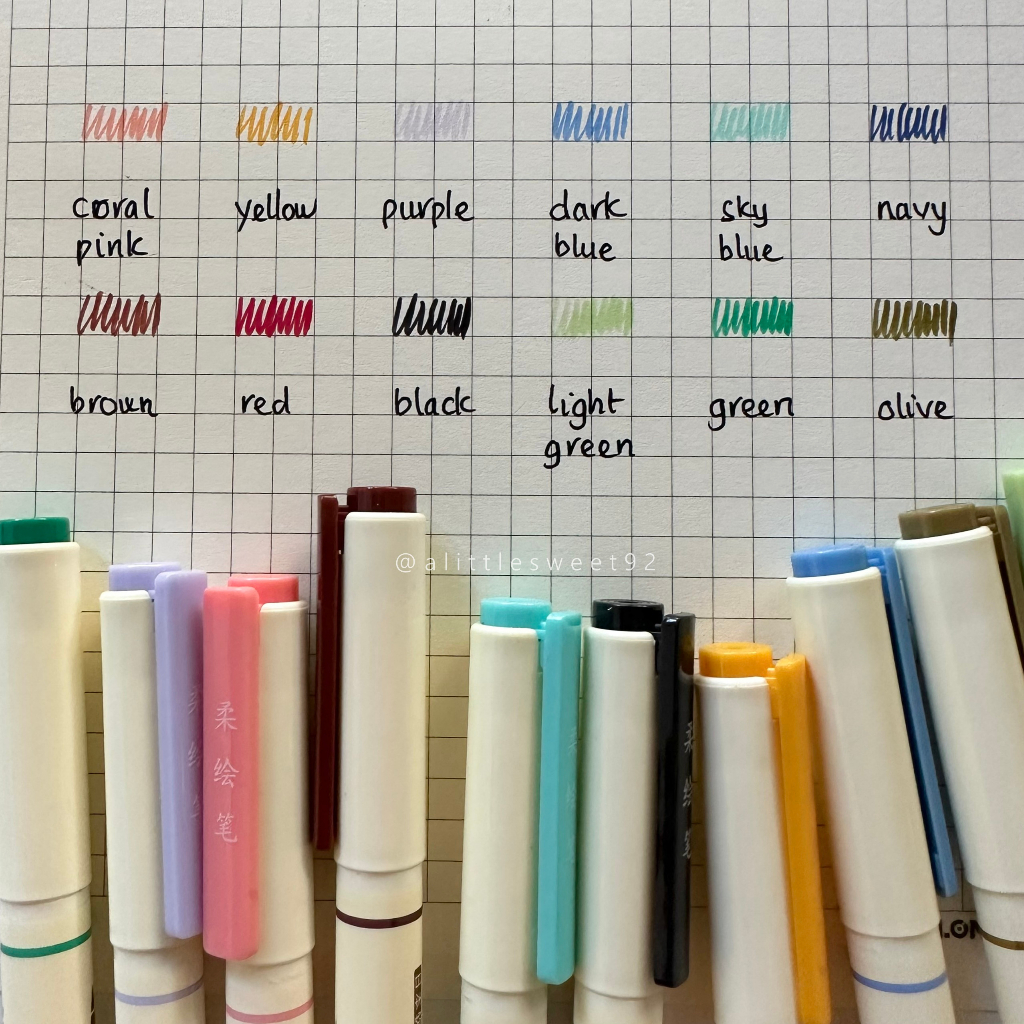 coral
pink
yellow
purple
dark
blue
sky
blue
navy
brown
red
black
light
green
green
olive
@alittlesweet92
柔
绘
笔